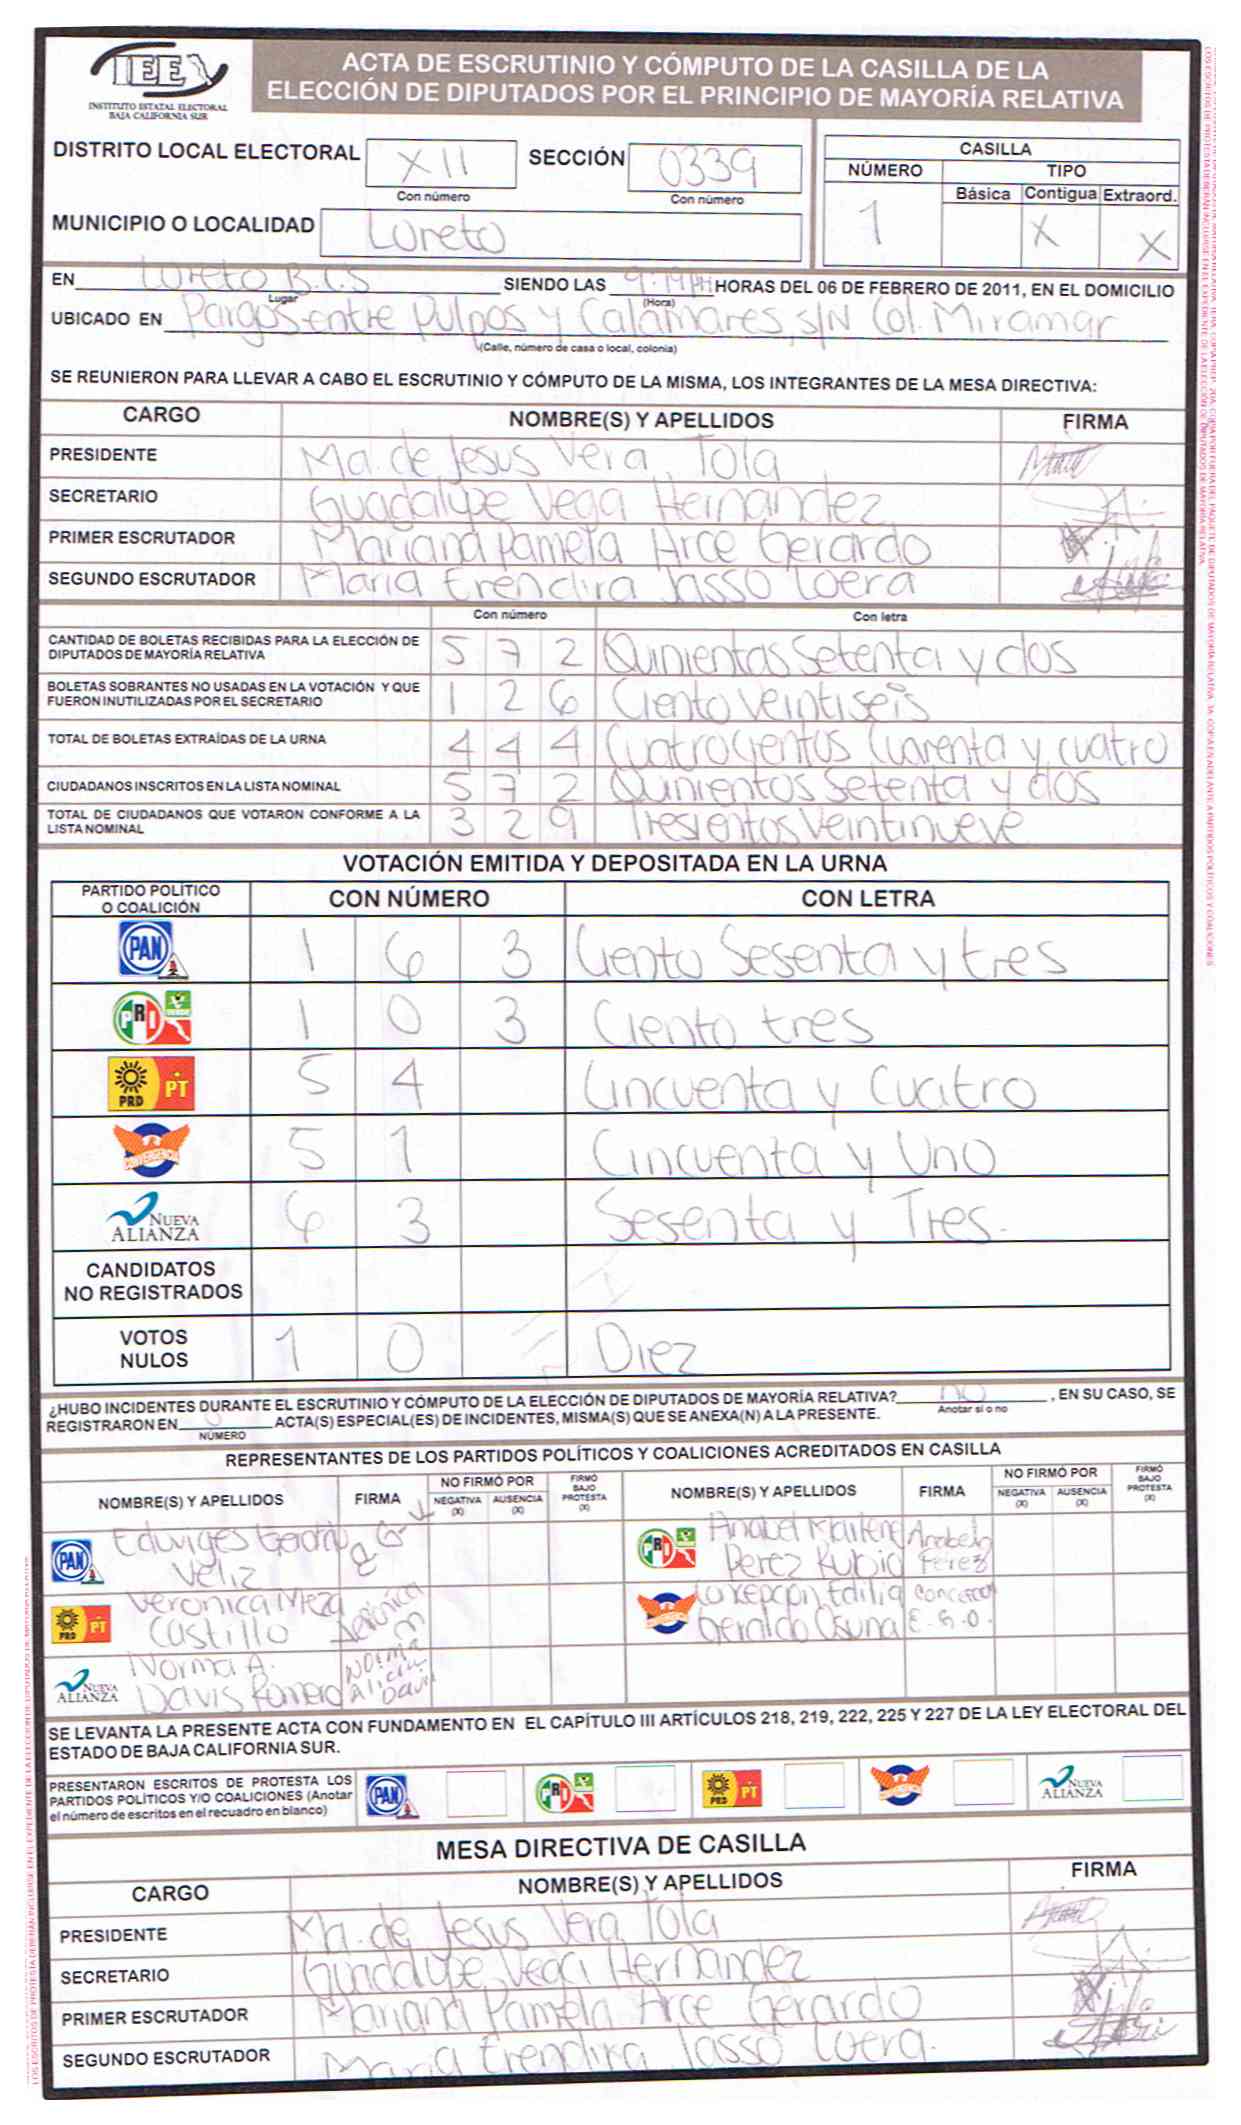 IEE
INSTITUTO ESTATAL ELECTORAL
BAJA CALIFORNIA SUR
ACTA DE ESCRUTINIO Y CÓMPUTO DE LA CASILLA DE LA
ELECCIÓN DE DIPUTADOS POR EL PRINCIPIO DE MAYORÍA RELATIVA
DISTRITO LOCAL ELECTORAL XII SECCIÓN 0339
Con número Con número
MUNICIPIO O LOCALIDAD Loreto
CASILLA
NÚMERO TIPO
Básica Contigua Extraord.
1 X X
EN Loreto B.C.S SIENDO LAS HORAS DEL 06 DE FEBRERO DE 2011, EN EL DOMICILIO
Lugar (Hora)
UBICADO EN Pargos entre Pulpos y Calamares, s/N Col. Miramar
(Calle, número de casa o local, colonia)
SE REUNIERON PARA LLEVAR A CABO EL ESCRUTINIO Y CÓMPUTO DE LA MISMA, LOS INTEGRANTES DE LA MESA DIRECTIVA:
CARGO NOMBRE(S) Y APELLIDOS FIRMA
PRESIDENTE Ma. de Jesus Vera Tola
SECRETARIO Guadalupe Vega Hernandez
PRIMER ESCRUTADOR Mariana Pamela Arce Gerardo
SEGUNDO ESCRUTADOR Maria Erendira Jasso Loera
Con número Con letra
CANTIDAD DE BOLETAS RECIBIDAS PARA LA ELECCIÓN DE
DIPUTADOS DE MAYORÍA RELATIVA 5 7 2 Quinientos Setenta y dos
BOLETAS SOBRANTES NO USADAS EN LA VOTACIÓN Y QUE
FUERON INUTILIZADAS POR EL SECRETARIO 1 2 6 Ciento Veintiseis
TOTAL DE BOLETAS EXTRAÍDAS DE LA URNA 4 4 4 Cuatrocientos Cuarenta y cuatro
CIUDADANOS INSCRITOS EN LA LISTA NOMINAL 5 7 2 Quinientos Setenta y dos
TOTAL DE CIUDADANOS QUE VOTARON CONFORME A LA
LISTA NOMINAL 3 2 9 Tresientos Veintinueve
VOTACIÓN EMITIDA Y DEPOSITADA EN LA URNA
PARTIDO POLÍTICO
O COALICIÓN CON NÚMERO CON LETRA
PAN 1 6 3 Ciento Sesenta y tres
PRI VERDE 1 0 3 Ciento tres
PRD PT 5 4 Cincuenta y Cuatro
CONVERGENCIA 5 1 Cincuenta y Uno
NUEVA
ALIANZA 6 3 Sesenta y Tres.
CANDIDATOS
NO REGISTRADOS
VOTOS
NULOS 1 0 Diez
¿HUBO INCIDENTES DURANTE EL ESCRUTINIO Y CÓMPUTO DE LA ELECCIÓN DE DIPUTADOS DE MAYORÍA RELATIVA? no , EN SU CASO, SE
Anotar sí o no
REGISTRARON EN ACTA(S) ESPECIAL(ES) DE INCIDENTES, MISMA(S) QUE SE ANEXA(N) A LA PRESENTE.
NÚMERO
REPRESENTANTES DE LOS PARTIDOS POLÍTICOS Y COALICIONES ACREDITADOS EN CASILLA
NOMBRE(S) Y APELLIDOS FIRMA NO FIRMÓ POR NEGATIVA (X) AUSENCIA (X) FIRMÓ BAJO PROTESTA (X) NOMBRE(S) Y APELLIDOS FIRMA NO FIRMÓ POR NEGATIVA (X) AUSENCIA (X) FIRMÓ BAJO PROTESTA (X)
PAN Eduviges
Veliz
PRI Anabel Marlene
Perez Rubio Anabel Perez
PRD PT Veronica Meza
Castillo Veronica M
CONVERGENCIA Edilia
Osuna E. G. O.
NUEVA
ALIANZA Norma A.
Davis Romero Norma Alicia Davis
SE LEVANTA LA PRESENTE ACTA CON FUNDAMENTO EN EL CAPÍTULO III ARTÍCULOS 218, 219, 222, 225 Y 227 DE LA LEY ELECTORAL DEL
ESTADO DE BAJA CALIFORNIA SUR.
PRESENTARON ESCRITOS DE PROTESTA LOS
PARTIDOS POLÍTICOS Y/O COALICIONES (Anotar
el número de escritos en el recuadro en blanco)
PAN PRI PRD PT CONVERGENCIA NUEVA ALIANZA
MESA DIRECTIVA DE CASILLA
CARGO NOMBRE(S) Y APELLIDOS FIRMA
PRESIDENTE Ma. de Jesus Vera Tola
SECRETARIO Guadalupe Vega Hernandez
PRIMER ESCRUTADOR Mariana Pamela Arce Gerardo
SEGUNDO ESCRUTADOR Maria Erendira Jasso Loera.